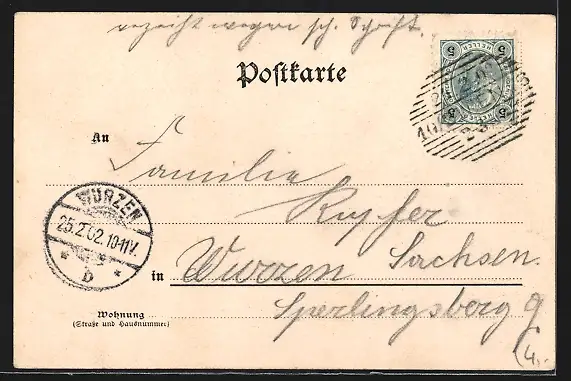 verzeiht wegen sch. Schrift.
Postkarte
5 HELLER 5
An
Familie
Kupfer
WURZEN
25.2.02.10-11V.
* D *
in Wurzen Sachsen.
Sperlingsberg 9
Wohnung
(Straße und Hausnummer)
(4,-